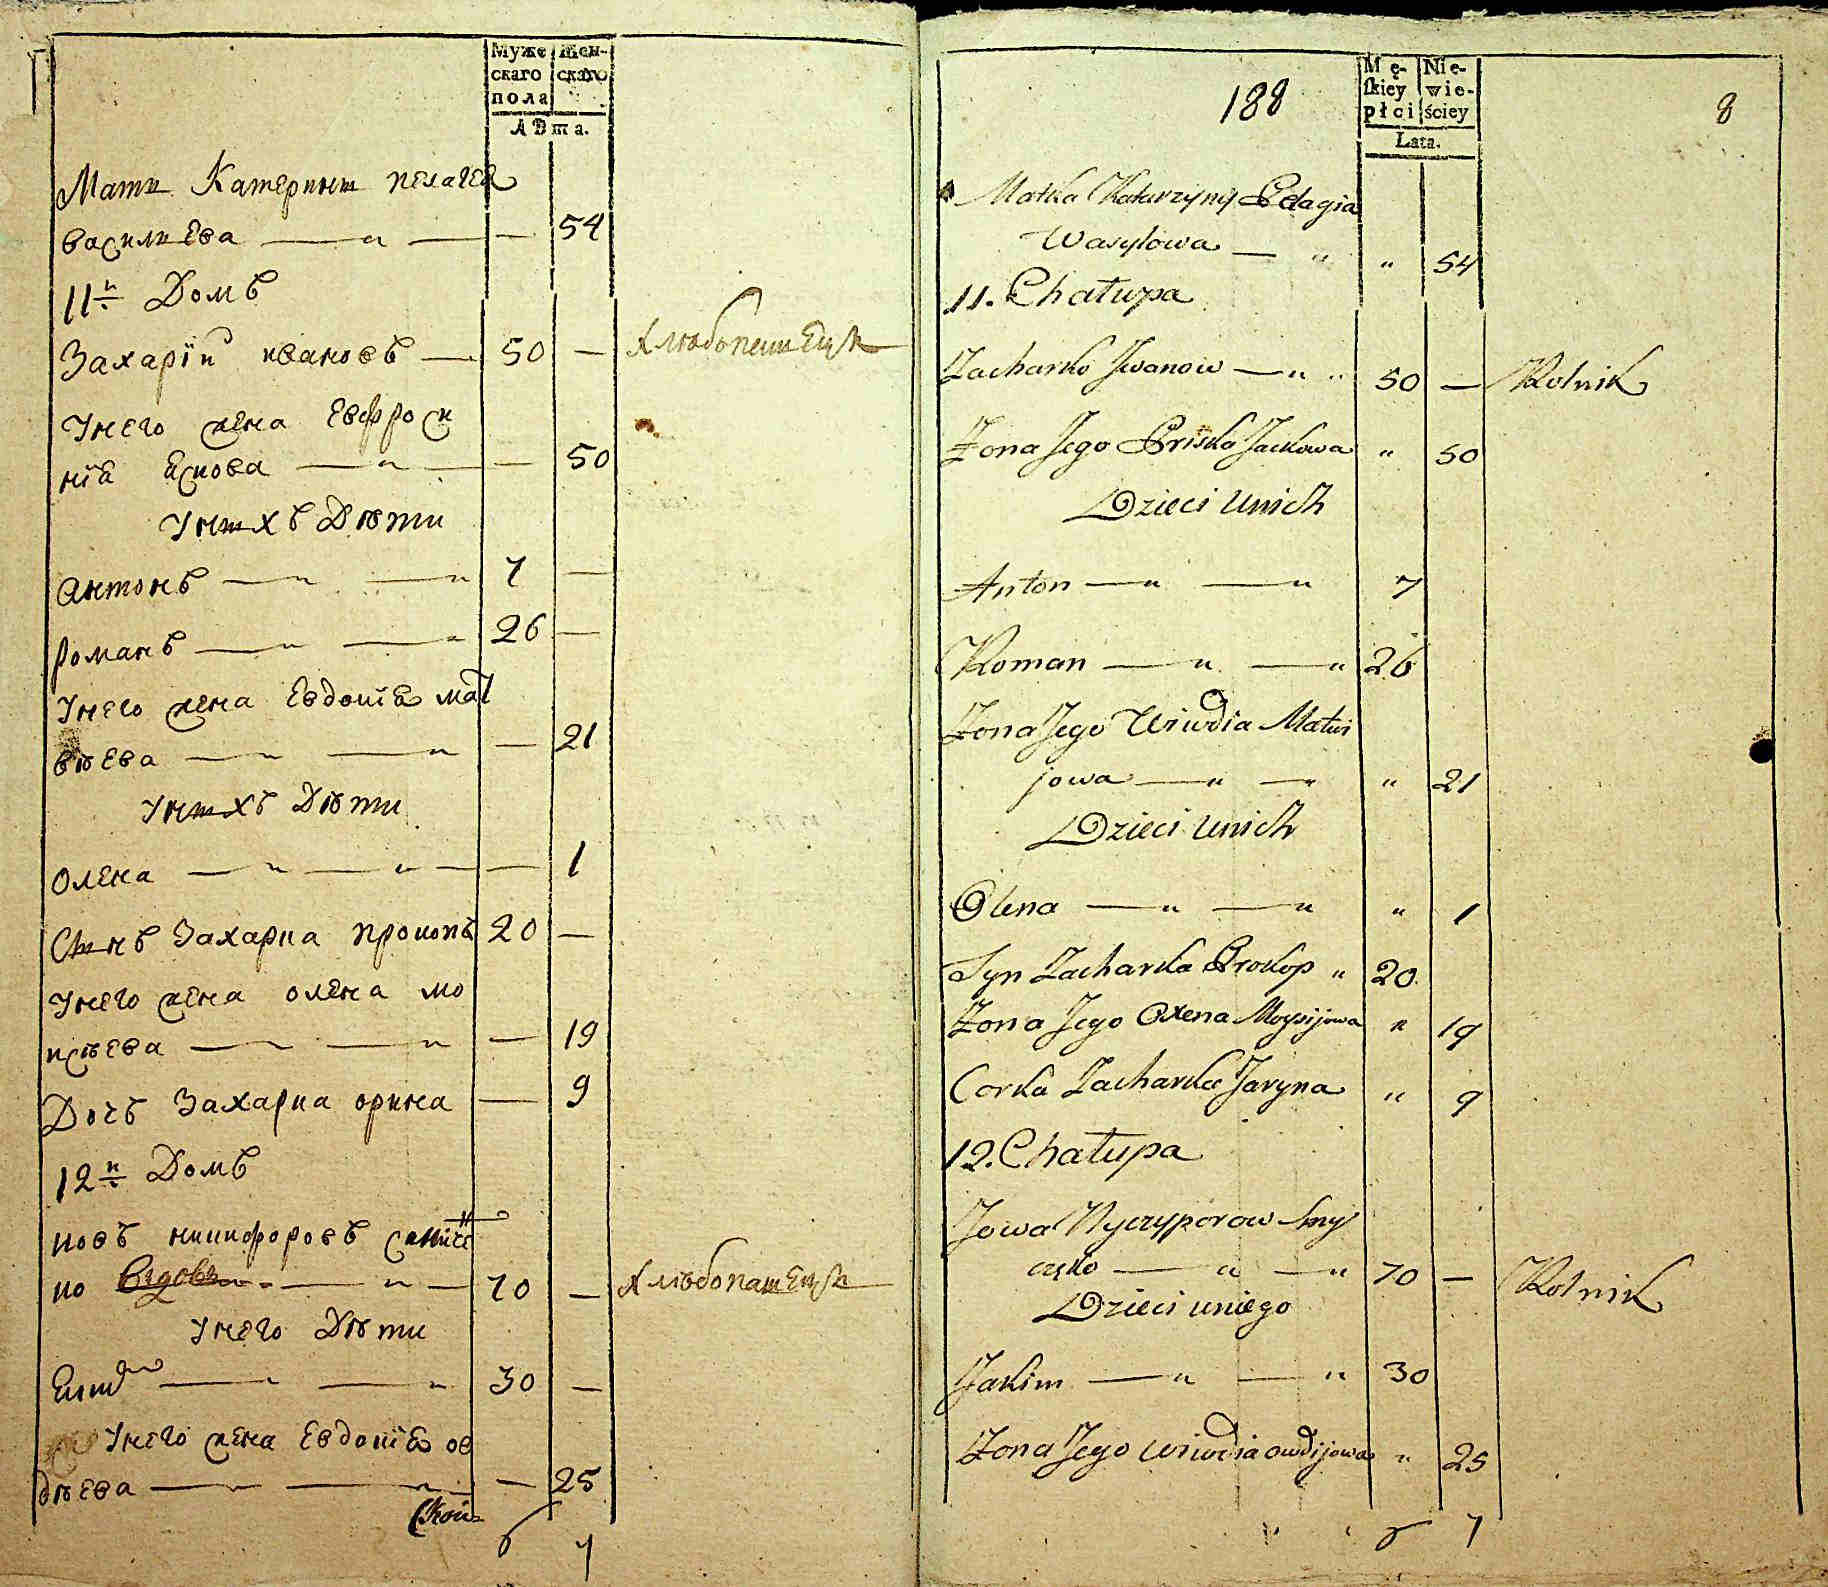 Муже Жен-
скаго скаго
пола
Лѣта.
Мати Катерины пелагея
василиева — 54
11й Домъ
Захарій ивановъ — 50 — Хлѣбопашецъ
Унего жена Евфроси
нія яцкова — — 50
Унихъ Дѣти
антонъ — 7 —
романъ — 26 —
Унего жена Евдокія мат
вѣева — — 21
Унихъ Дѣти
олена — — 1
Сынъ Захарка прокопъ 20 —
Унего жена олена мо
исѣева — — 19
Дочъ Захарка орина — 9
12й Домъ
иовъ никифоровъ
ко вдовъ — 70 — Хлѣбопашецъ
Унего Дѣти
Еким — 30 —
Унего жена Евдокія ов
дѣева — — 25
6 7
188
8
Mę- Nie-
skiey wie-
płci ściey
Lata.
Matka Katarzyny Pelagia
Wasylowa — " " 54
11. Chałupa
Zacharko Iwanow — " 50 — Rolnik
Żona Jego Priska Jackowa " 50
Dzieci unich
Anton — " — " 7
Roman — " — " 26
Żona Jego Wiwdia Matwi
jowa — " — " 21
Dzieci unich
Olena — " — " " 1
Syn Zacharka Prokop " 20
Żona Jego Oxena Moysijowa " 19
Corka Zacharka Jaryna " 9
12. Chałupa
Jowa Nyczyporow Sny
czko — " — " 70 — Rolnik
Dzieci uniego
Jakim — " — " 30
Żona Jego Wiwdia owdijowa " 25
6 7